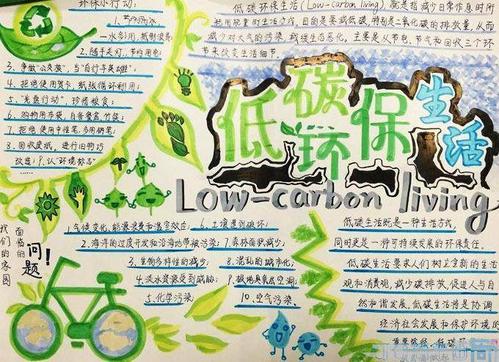 环保小行动:
1、节约用水,
一水多用,抵制浪费
2、随手关灯,节约用电
3、争做"公交族",当"自行车英雄"。
4、拒绝使用贺卡,纸张循环利用;
5、"光盘行动",珍惜粮食;
6、购物用布袋,自带餐盒、竹筷;
7、拒绝使用中性笔,多用钢笔;
8、回收废纸,进行旧物巧
改造;9、认"环境标志"
低碳环保生活(Low-carbon living),就是指减少日常作息时所
耗用能量的生活之式,目的是要减低碳,特别是二氧化碳的排放量,从而
减少对大气的污染,减缓生态恶化,主要是从节电、节气和回收三个环
节来改变生活细节
低碳
环保
生活
Low-carbon living
我们的家园
面临的
问题!
1、气候变化、能源浪费和温室效应;
2、海洋的过度开发和沿海功带被污染;
3、生物多样性的减少;
4、淡水资源受到威胁;
5、化学污染;
6、土壤遭到破坏;
7、森林面积减少;
8、混乱的城市化;
9、极地臭氧层空洞;
10、空气污染;
低碳生活既是一种生活方式
同时更是一种可持续发展的环保责任。
低碳生活要求人们树立全新的生活
观和消费观,减少碳排放,促进人与自
然和谐发展。低碳生活将是协调
经济社会发展和保护环境的